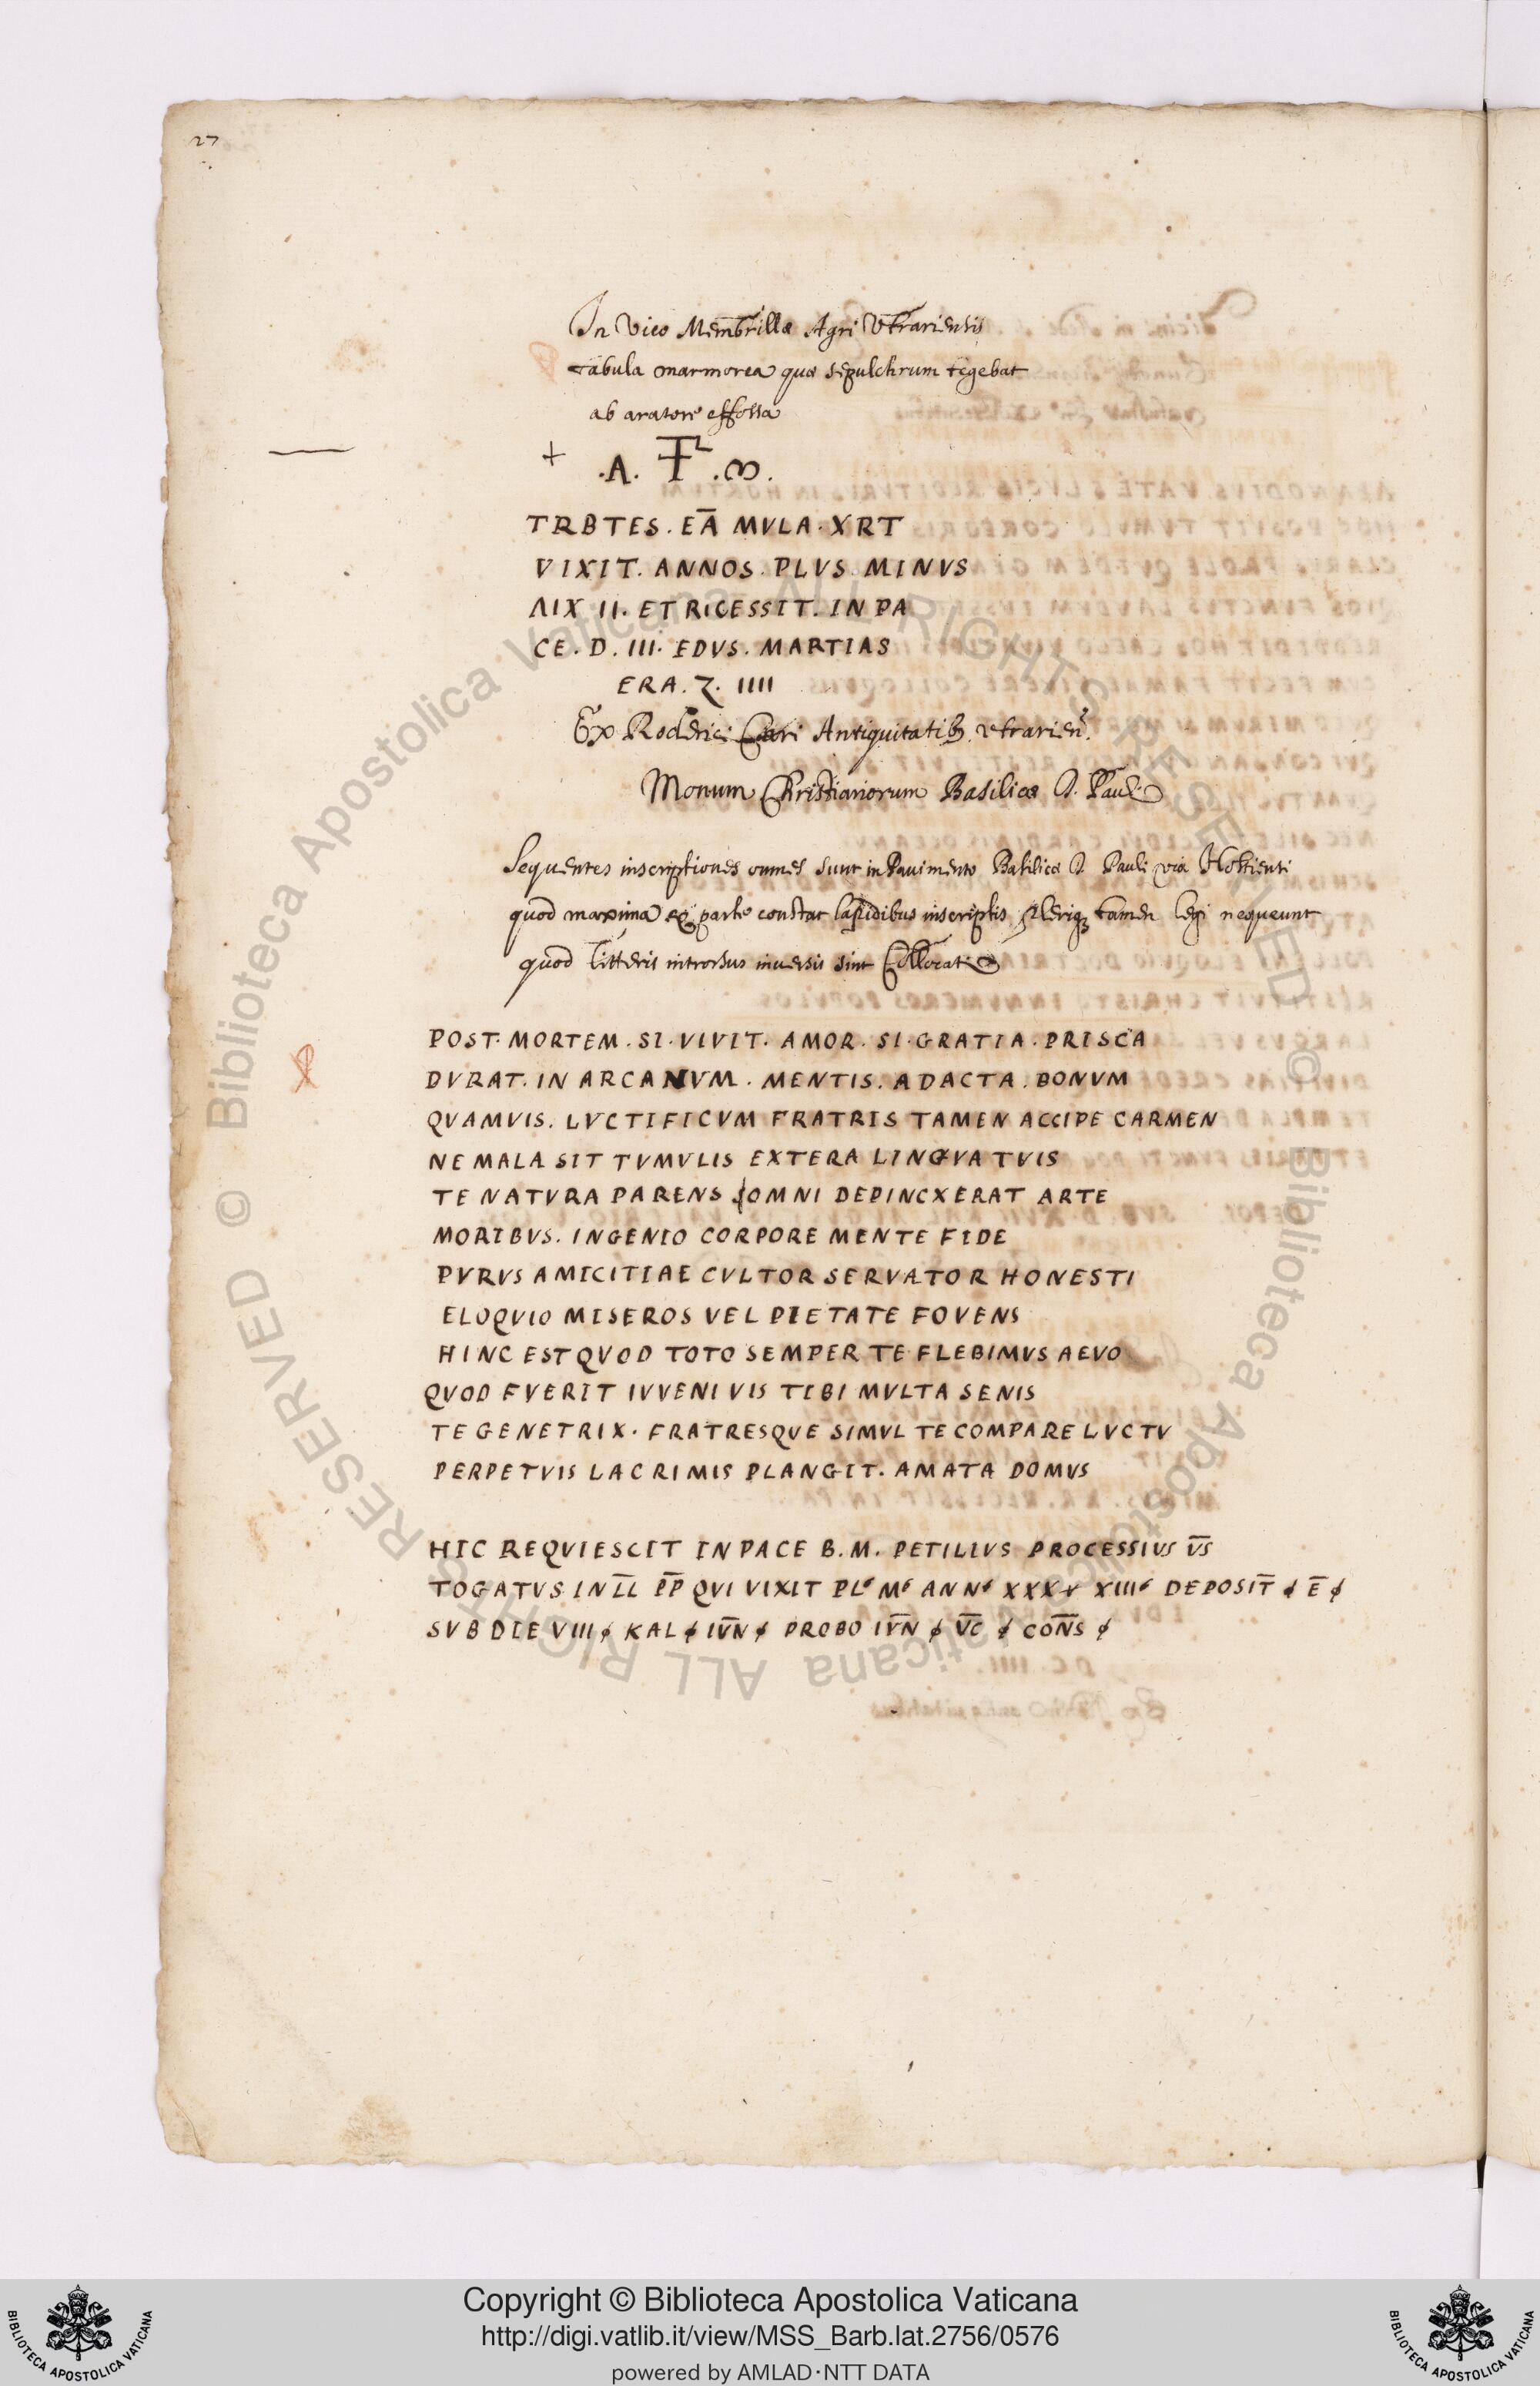 27
In Vico Membrillæ Agri Vtrariensis
tabula marmorea quæ sepulchrum tegebat
ab aratore effossa
+ .A. .ω.
TRBTES. EA̅ MVLA. XRT
VIXIT. ANNOS. PLVS. MINVS
ΛIX II. ET RICESSIT. IN PA
CE. D. III. EDVS. MARTIAS
ERA. Z. IIII
Ex Roderici Cari Antiquitatib. vtrarien.
Monum Christianorum Basilicæ S. Pauli
Sequentes inscriptiones omnes sunt in Pauimento Basilicæ S. Pauli via Hostiensi
quod maxima ex parte constat lapidibus inscriptis pleriq; tamen legi nequeunt
quod litteris introrsus inuersis sint Collocati
POST. MORTEM. SI. VIVIT. AMOR. SI. GRATIA. PRISCA
DVRAT. IN ARCANVM. MENTIS. ADACTA. BONVM
QVAMVIS. LVCTIFICVM FRATRIS TAMEN ACCIPE CARMEN
NE MALA SIT TVMVLIS EXTERA LINGVA TVIS
TE NATVRA PARENS OMNI DEPINCXERAT ARTE
MORIBVS. INGENIO CORPORE MENTE FIDE
PVRVS AMICITIAE CVLTOR SERVATOR HONESTI
ELOQVIO MISEROS VEL PIETATE FOVENS
HINC EST QVOD TOTO SEMPER TE FLEBIMVS AEVO
QVOD FVERIT IVVENI VIS TIBI MVLTA SENIS
TE GENETRIX. FRATRESQVE SIMVL TE COMPARE LVCTV
PERPETVIS LACRIMIS PLANGIT. AMATA DOMVS
HIC REQVIESCIT IN PACE B. M. PETILIVS PROCESSIVS V̅S
TOGATVS IN I̅L̅ P̅P̅ QVI VIXIT PL M ANN XXX V XIIII DEPOSIT̅ E̅
SVB DIE VIII KAL IV̅N PROBO IV̅N V̅C CON̅S
Biblioteca Apostolica Vaticana ALL RIGHTS RESERVED ©
Biblioteca Apostolica Vaticana ALL RIGHTS RESERVED ©
BIBLIOTECA APOSTOLICA VATICANA
Copyright © Biblioteca Apostolica Vaticana
http://digi.vatlib.it/view/MSS_Barb.lat.2756/0576
powered by AMLAD·NTT DATA
BIBLIOTECA APOSTOLICA VATICANA